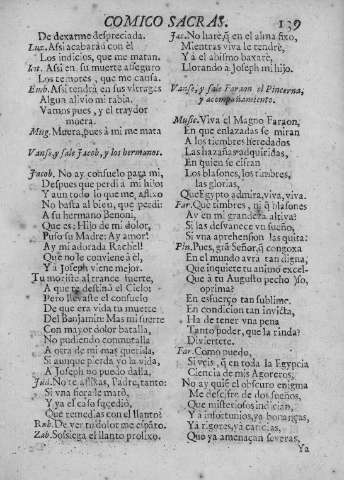 COMICO SACRAS.
139
De dexarme despreciada.
Luz. Assi acabarán con èl
Los indicios, que me matan.
Int. Assi en su muerte asseguro
Los temores, que me causa.
Emb. Assi tendrà en sus vltrages
Algun alivio mi rabia.
Vamos pues, y el traydor
muera.
Mug. Muera, pues à mi me mata
Vanse, y sale Jacob, y los hermanos.
Jacob. No ay consuelo para mi,
Despues que perdi à mi hijo:
Y aun todo lo que me, assiste
No basta al bien, que perdi:
A su hermano Benoni,
Que es: Hijo de mi dolor,
Puso su Madre: Ay amor!
Ay mi adorada Rachèl!
Que no le conviene à èl,
Y à Joseph viene mejor.
Tu moriste al trance fuerte,
A que te destinò el Cielo;
Pero llevaste el consuelo
De que era vida tu muerte
Del Benjamin: Mas mi suerte
Con mayor dolor batalla,
No pudiendo conmutalla
A otra de mi mas querida,
Si aunque pierda yo la vida,
A Joseph no puedo dalla.
Jud. No te aflixas, Padre, tanto:
Si vna fiera le matò,
Y ya el caso sucediò,
Que remedias con el llanto?
Rub. De ver tu dolor me espãto.
Zab. Sossiega el llanto prolixo.
Jac. No harè, q̃ en el alma fixo,
Mientras viva le tendrè,
Y à el abismo baxarè,
Llorando à Joseph mi hijo.
Vanse, y sale Faraon el Pincerna,
y acompañamiento.
Music. Viva el Magno Faraon,
En que enlazadas se miran
A los tiempos heredados
Las hazañas adquiridas,
En quien se cifran
Los blasones, los timbres,
las glorias,
Que Egypto admira, viva, viva.
Far. Què timbres, ni q̃ blasones
Ay en mi grandeza altiva?
Si las desvanece vn sueño,
Si vna aprehension las quita:
Pin. Pues, grã Señor, q̃ congoxa
En el mundo avrà tan digna,
Que inquiete tu animo excel-
Que à tu Augusto pecho )so,
oprima?
En esfuerço tan sublime.
En condicion tan invicta,
Ha de tener vna pena
Tanto poder, que la rinda?
Diviertete.
Far. Como puedo,
Si veis, q̃ en toda la Egypcia
Ciencia de mis Agoreros,
No ay quiẽ el obscuro enigma
Me descifre de dos sueños,
Que misteriosos indician,
Yà infortunios, yà bonanças,
Yà rigores, yà caricias,
Que ya amenaçan severas,
Ya